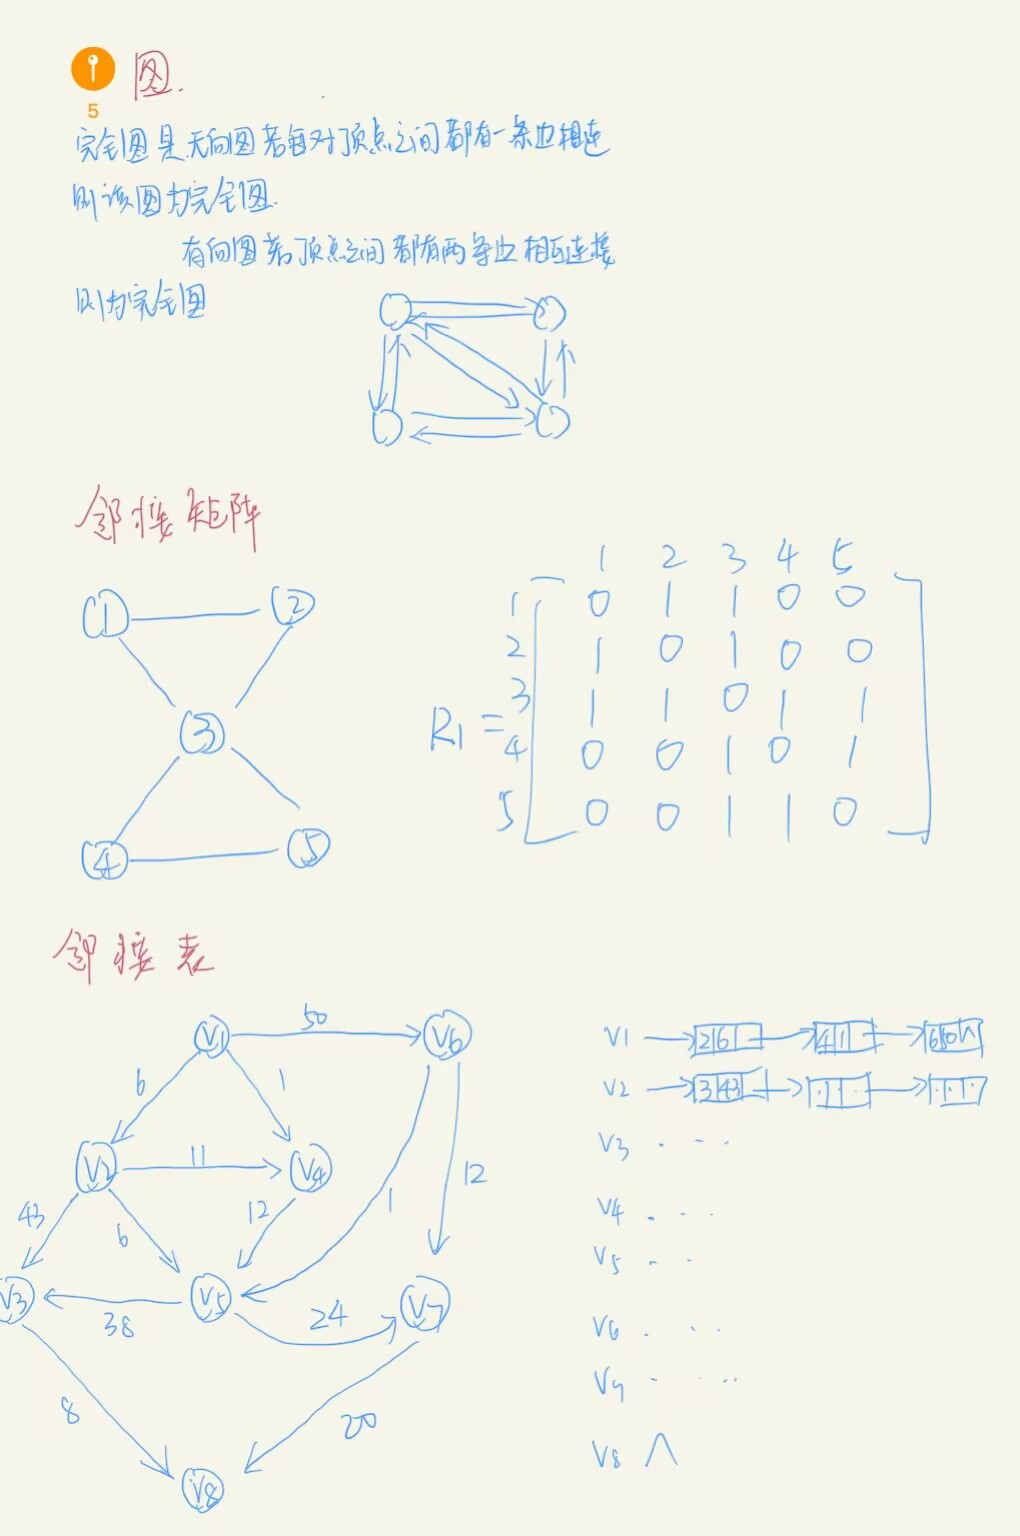 图.
5
完全图是无向图若每对顶点之间都有一条边相连
则该图为完全图.
有向图若顶点之间都有两条边相互连接
则为完全图
邻接矩阵
1 2 3 4 5
① ②
1 0 1 1 0 0
2 1 0 1 0 0
③
R1 =
3 1 1 0 1 1
4 0 0 1 0 1
5 0 0 1 1 0
④ ⑤
邻接表
V1 50 V6
6 1
V2 11 V4
43 6 12 1 12
V3 38 V5 24 V7
8 20
V8
V1 2 6 4 1 6 50 ∧
V2 3 43 · · · · · ·
V3 · · ·
V4 · · ·
V5 · ·
V6 · · ·
V7 · · · ·
V8 ∧